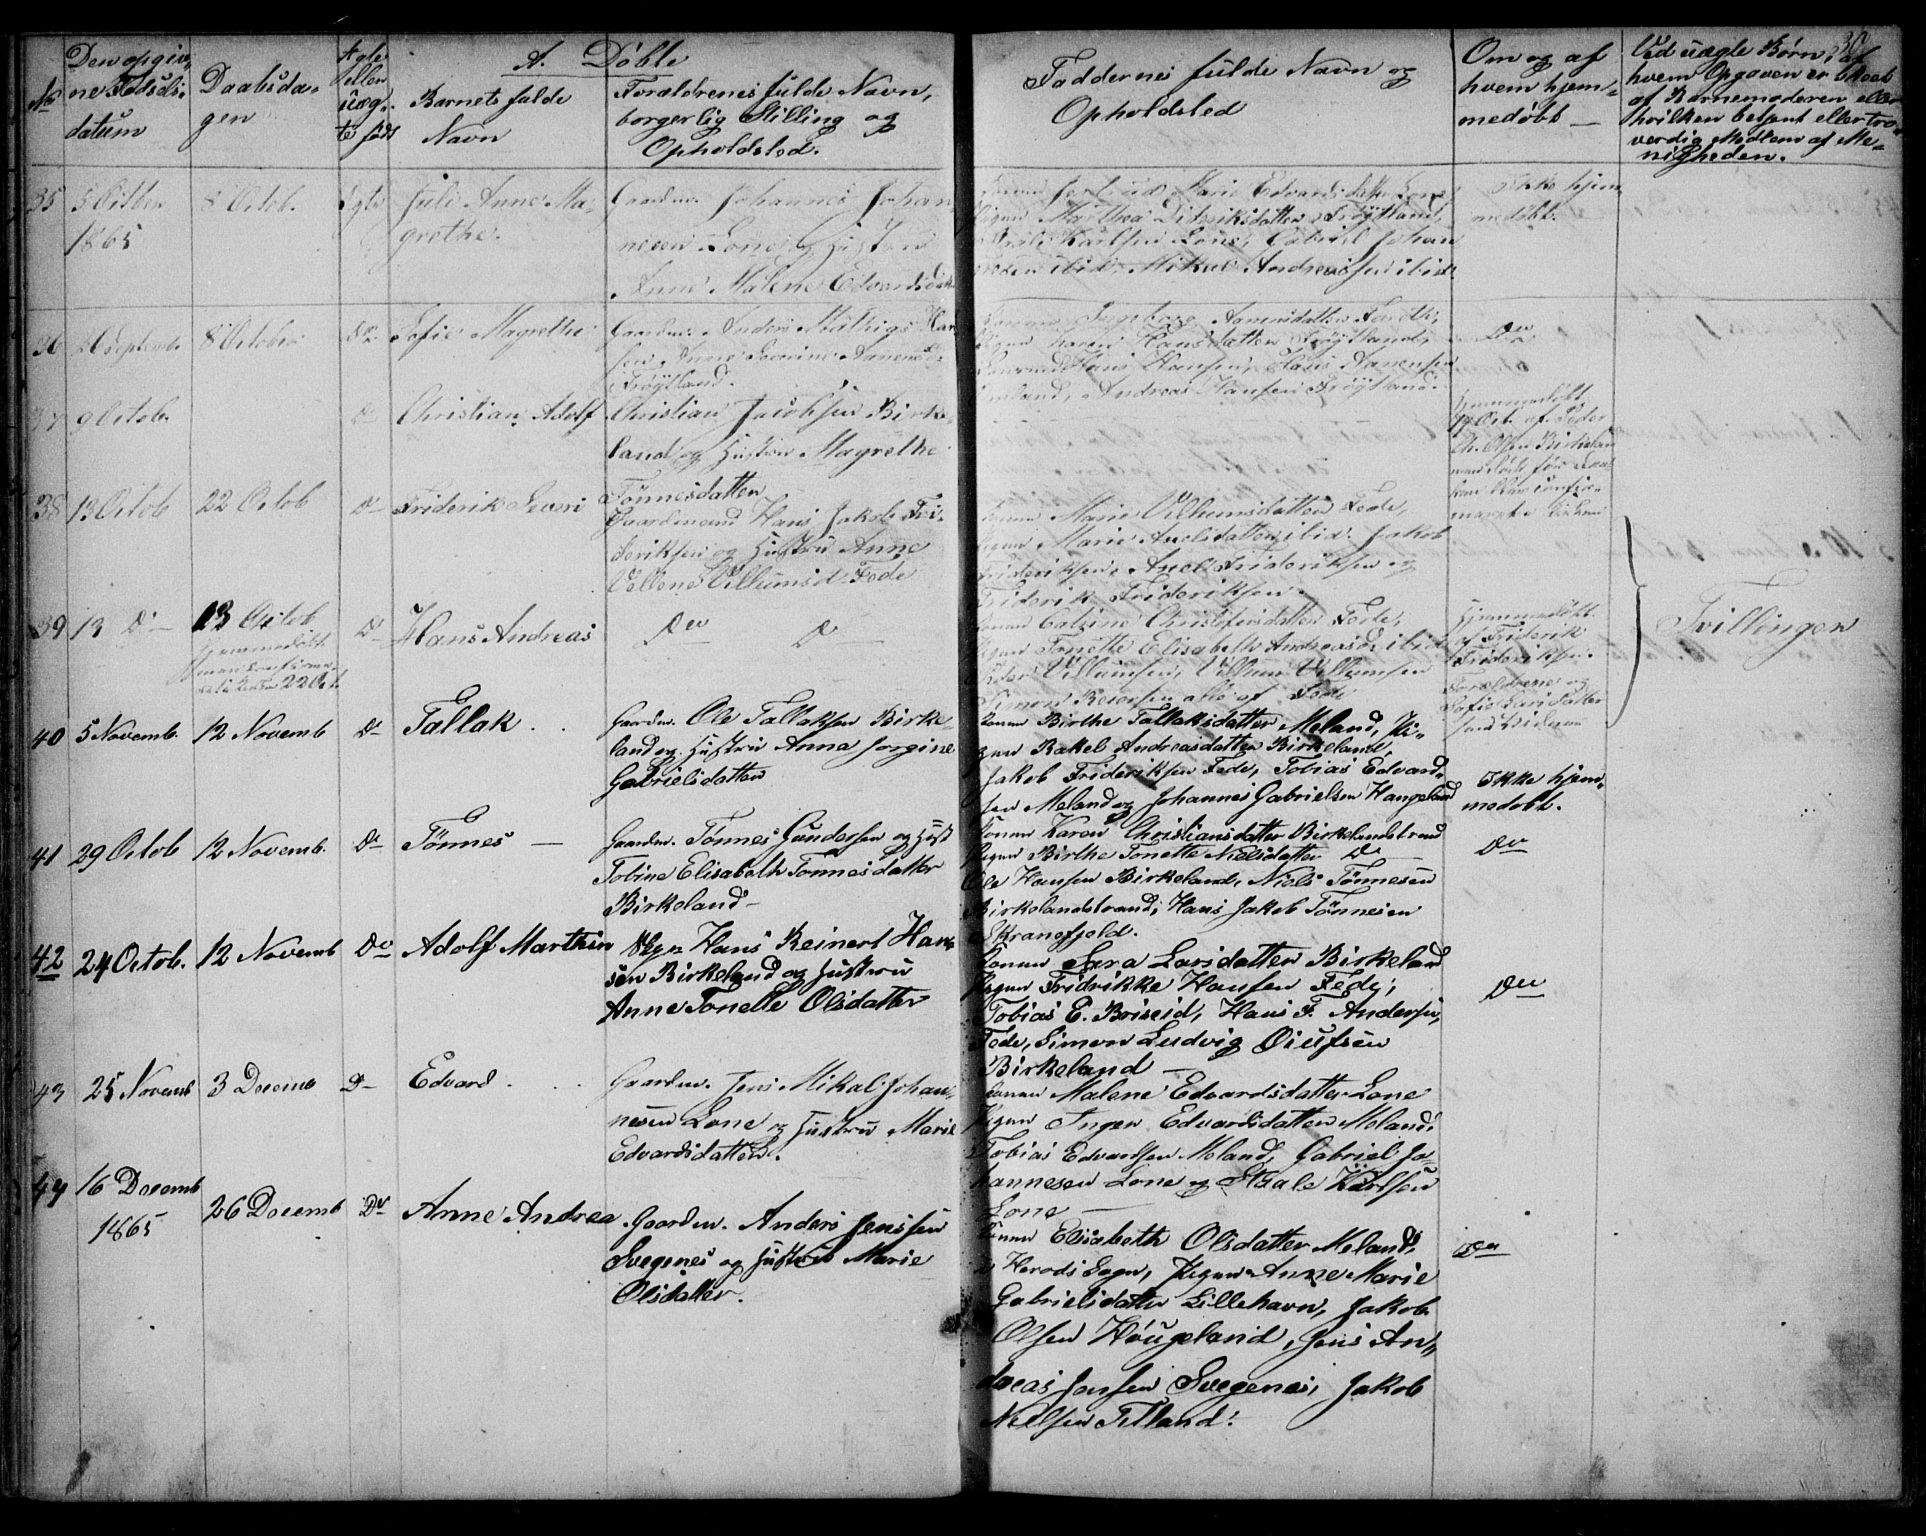 30
A. Døbte
No
Den opgiv-
ne Fødsels-
datum
Daabsda-
gen
Ægte
eller
uæg-
te føds
Barnets fulde
Navn
Forældrenes fulde Navn,
borgerlig Stilling og
Opholdsted.
Faddernes fulde Navn og
Opholdsted
Om og af
hvem hjem-
medøbt —
Ved uægte Børn, af
hvem Opgaven er
af Barnemoderen eller
hvilken betjent eller tro-
verdig Medlem af Me-
nigheden.
35 5 Octber 8 Octob. Ægte Juli Anne Ma-
1865 grethe.
Gaardm. Johannes Johan-
nesen Lone og Hustru
Anne Malene Edvardsdatt
Marie Edvardsdatter Lone
Marthea Didriksdatter Frøytland,
Karlsen Lone, Gabriel Johan
ibid. Mikal Andreassen ibid.
Ikke hjem
medøbt.
36 26 Septemb. 8 Octobr Do Sofie Magrethe
Gaardm. Anders Mathias Han
sen, Anne Severine Aanensd
Frøytland.
Ingeborg Aanensdatter
Karen Hansdatter Frøytland,
Hans Hansen, Hans Aanensen
Andreas Hansen Frøytland.
Do
37 9 Octob. Do Christian Adolf
Christian Jacobsen Birke-
land og Hustru Magrethe
Tønnesdatter
Hjemmedøbt
Oct. af Peder
Ch. Olsen Birkeland
38 13 Octob 22 Octob Do Friderik Severi
Gaardmand Hans Jakob Fri-
deriksen og Hustru Anne
Vellene Villumsd. Fede
Marie Villumsdatter Fede,
Marie Axelsdatter ibid. Jakob
Frideriksen, Axel Frideriksen og
Friderik Frideriksen.
39 13 Do 13 Octob Do Hans Andreas Do Do
Hjemmedøbt
22 Oct.
Catrine Christofersdatter Fede,
Tonette Elisabeth Andreasd. ibid
Peder Villumsen, Villum Villumsen
Simon Reiersen alle af Fede
Hjemmedøbt
af Friderik
Frideriksen.
Forældrene og
Sofie Larsdatter
Tvillinger
40 5 Novemb. 12 Novemb Do Tallak
Gaardm. Ole Tallaksen Birke-
land og Hustru Anna Jorgine
Gabrielsdatter
Konen Birthe Tallaksdatter Meland, Pi-
gen Rakel Andreasdatter Birkeland,
Jakob Frideriksen Fede, Tobias Edvard-
sen Meland og Johannes Gabrielsen Haugeland
Ikke hjem-
medøbt.
41 29 Octob 12 Novemb. Do Tönnes —
Gaardm. Tönnes Gundersen og Hust
Tobine Elisabeth Tønnesdatter
Birkeland —
Konen Karen Christiansdatter Birkelandstrand
Pigen Birthe Tonette Nielsdatter Do
Ole Hansen Birkeland, Niels Tönnesen
Birkelandstrand, Hans Jakob Tønnesen
Skransfjeld.
Do
42 24 Octob. 12 Novemb Do Adolf Marthin
Hans Reinert Han-
sen Birkeland og Hustru
Anne Tonette Olsdatter
Konen Sara Larsdatter Birkeland
Pigen Fridrikke Hansen Fede,
Tobias E. Briseid, Hans F. Andersen,
Fede, Simon Ludvig Oiufsen
Birkeland —
Do
43 25 Novemb 3 Decemb Do Edvard
Gaardm. Jens Mikal Johan-
nesen Lone og Hustru Marie
Edvardsdatter.
Konen Malene Edvardsdatter Lone
Pigen Inger Edvardsdatter Meland,
Tobias Edvardsen Meland, Gabriel Jo-
hannesen Lone og Staale Karlsen
Lone —
44 16 Decemb 26 Decemb Do Anne Andrea
1865
Gaardm. Anders Jenssen
Svegenes og Hustru Marie
Olsdatter.
Konen Elisabeth Olsdatter Meland,
i Herads Sogn, Pigen Anne Marie
Gabrielsdatter Lillehavn, Jakob
Olsen Höugeland, Jens An-
dreas Jensen Svegenes, Jakob
Nielsen Titland.
Do